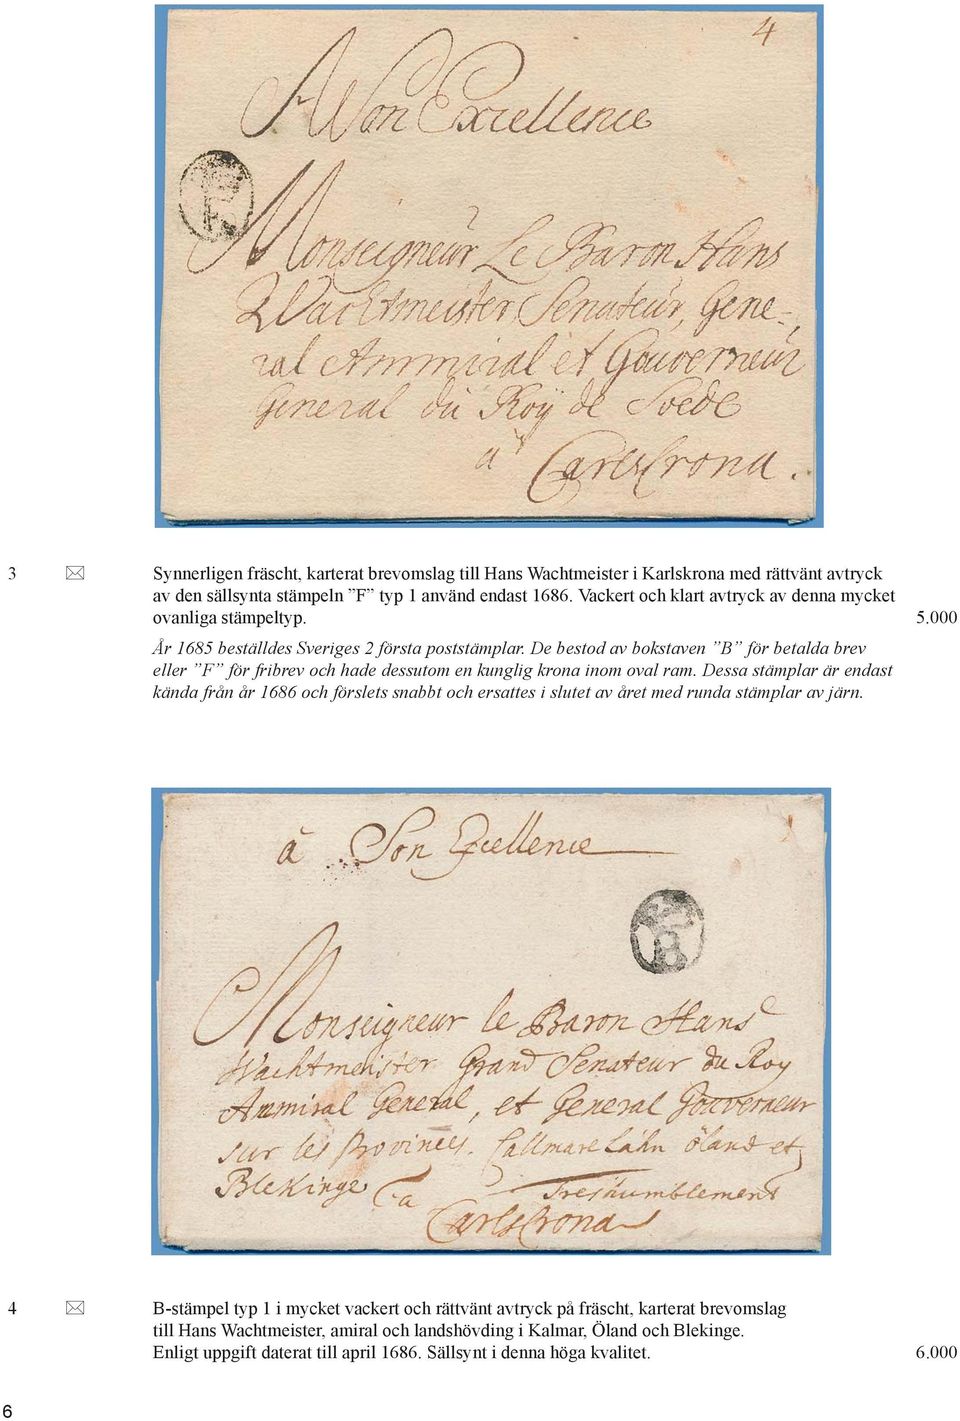 4
A Son Excellence
F
Monseigneur Le Baron Hans
Wachtmeister, Senateur, Gene-
ral Ammiral et Gouverneur
General du Roÿ de Svede
a Carlscrona.
3 Synnerligen fräscht, karterat brevomslag till Hans Wachtmeister i Karlskrona med rättvänt avtryck
av den sällsynta stämpeln ”F” typ 1 använd endast 1686. Vackert och klart avtryck av denna mycket
ovanliga stämpeltyp. 5.000
År 1685 beställdes Sveriges 2 första poststämplar. De bestod av bokstaven ”B” för betalda brev
eller ”F” för fribrev och hade dessutom en kunglig krona inom oval ram. Dessa stämplar är endast
kända från år 1686 och förslets snabbt och ersattes i slutet av året med runda stämplar av järn.
à Son Excellence
B
Monseigneur le Baron Hans
Wachtmeister Grand Senateur du Roy
Ammiral General, et General Gouverneur
sur les Provinces. Callmare Lähn öland et
Blekinge Treshumblement
a Carlscrona
4 B-stämpel typ 1 i mycket vackert och rättvänt avtryck på fräscht, karterat brevomslag
till Hans Wachtmeister, amiral och landshövding i Kalmar, Öland och Blekinge.
Enligt uppgift daterat till april 1686. Sällsynt i denna höga kvalitet. 6.000
6